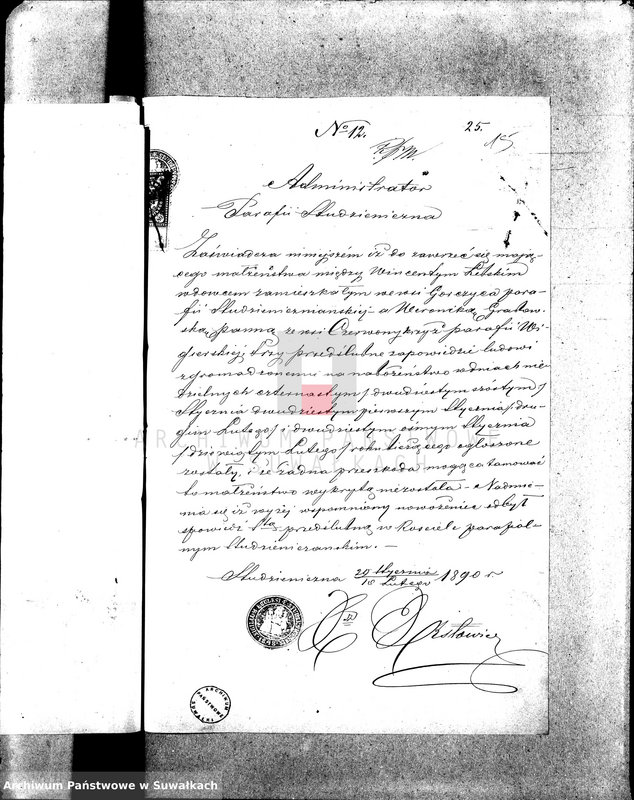 No 12.
25.
15
Administrator
Parafii Studzieniczna
Zaświadcza niniejszém iż do zawrzeć się mają-
cego małżeństwa między Wincentym Litskim
wdowcem zamieszkałym we wsi Gorczyca para-
fii Studzieniczniańskiej a Weroniką Grabow-
ską, panną ze wsi Czerwonykrzyż parafii Wi-
gierskiej, Trzy przedślubne zapowiedzie ludowi
zgromadzonemu na nabożeństwo w dniach nie-
dzielnych czternastym / dwudziestym szóstym /
Stycznia dwudziestym pierwszym Stycznia / dru-
gim Lutego / i dwudziestym ósmym Stycznia
/ dziewiątym Lutego / roku bieżącego ogłoszone
zostały, i że żadna przeszkoda mogąca tamować
to małżeństwo wykrytą nie została. Nadmie-
nia się iż wyżej wspomniony nowożeniec odbył
spowiedź Stą przedślubną w kościele parafial-
nym Studzieniczańskim. —
Studzieniczna 29 Stycznia / 10 Lutego 1890 r
X.
ARCHIWUM PAŃSTWOWE
W SUWAŁKACH
ARCHIWUM PAŃSTWOWE
Archiwum Państwowe w Suwałkach